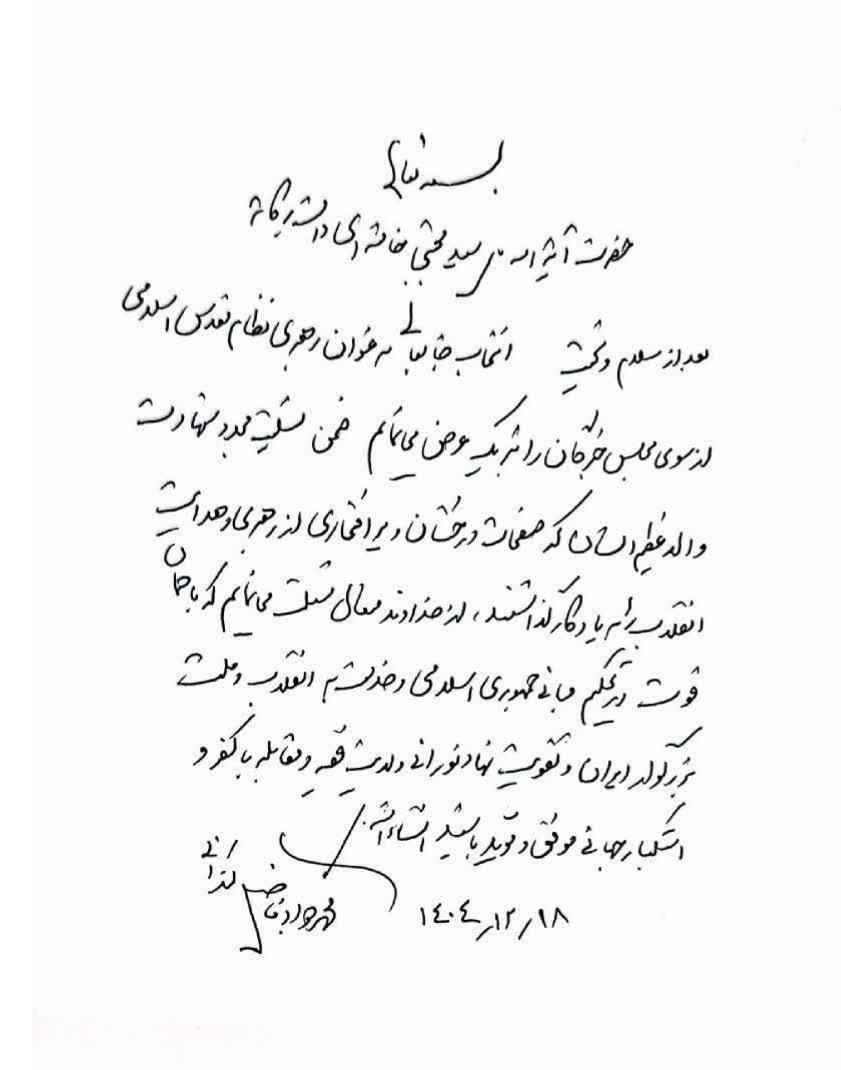 بسمه تعالی
حضرت آیة الله سید مجتبی خامنه‌ای دامت برکاته
بعد از سلام و تحیت انتخاب جنابعالی به عنوان رهبری نظام مقدس اسلامی
از سوی مجلس خبرگان را تبریک عرض می‌نمایم ضمن تسلیت مجدد شهادت
والد عظیم الشان که صفحات درخشان و پر افتخاری از رهبری و هدایت
انقلاب را به یادگار گذاشتند، از خداوند متعال مسئلت می‌نمایم که با همان
قوت در تحکیم مبانی جمهوری اسلامی و خدمت به انقلاب و ملت
بزرگوار ایران و تقویت نهاد نورانی ولایت فقیه و مقابله با کفر و
استکبار جهانی موفق و مؤید باشید انشاءالله.
محمد جواد فاضل لنکرانی
۱۴۰۴/۱۲/۱۸